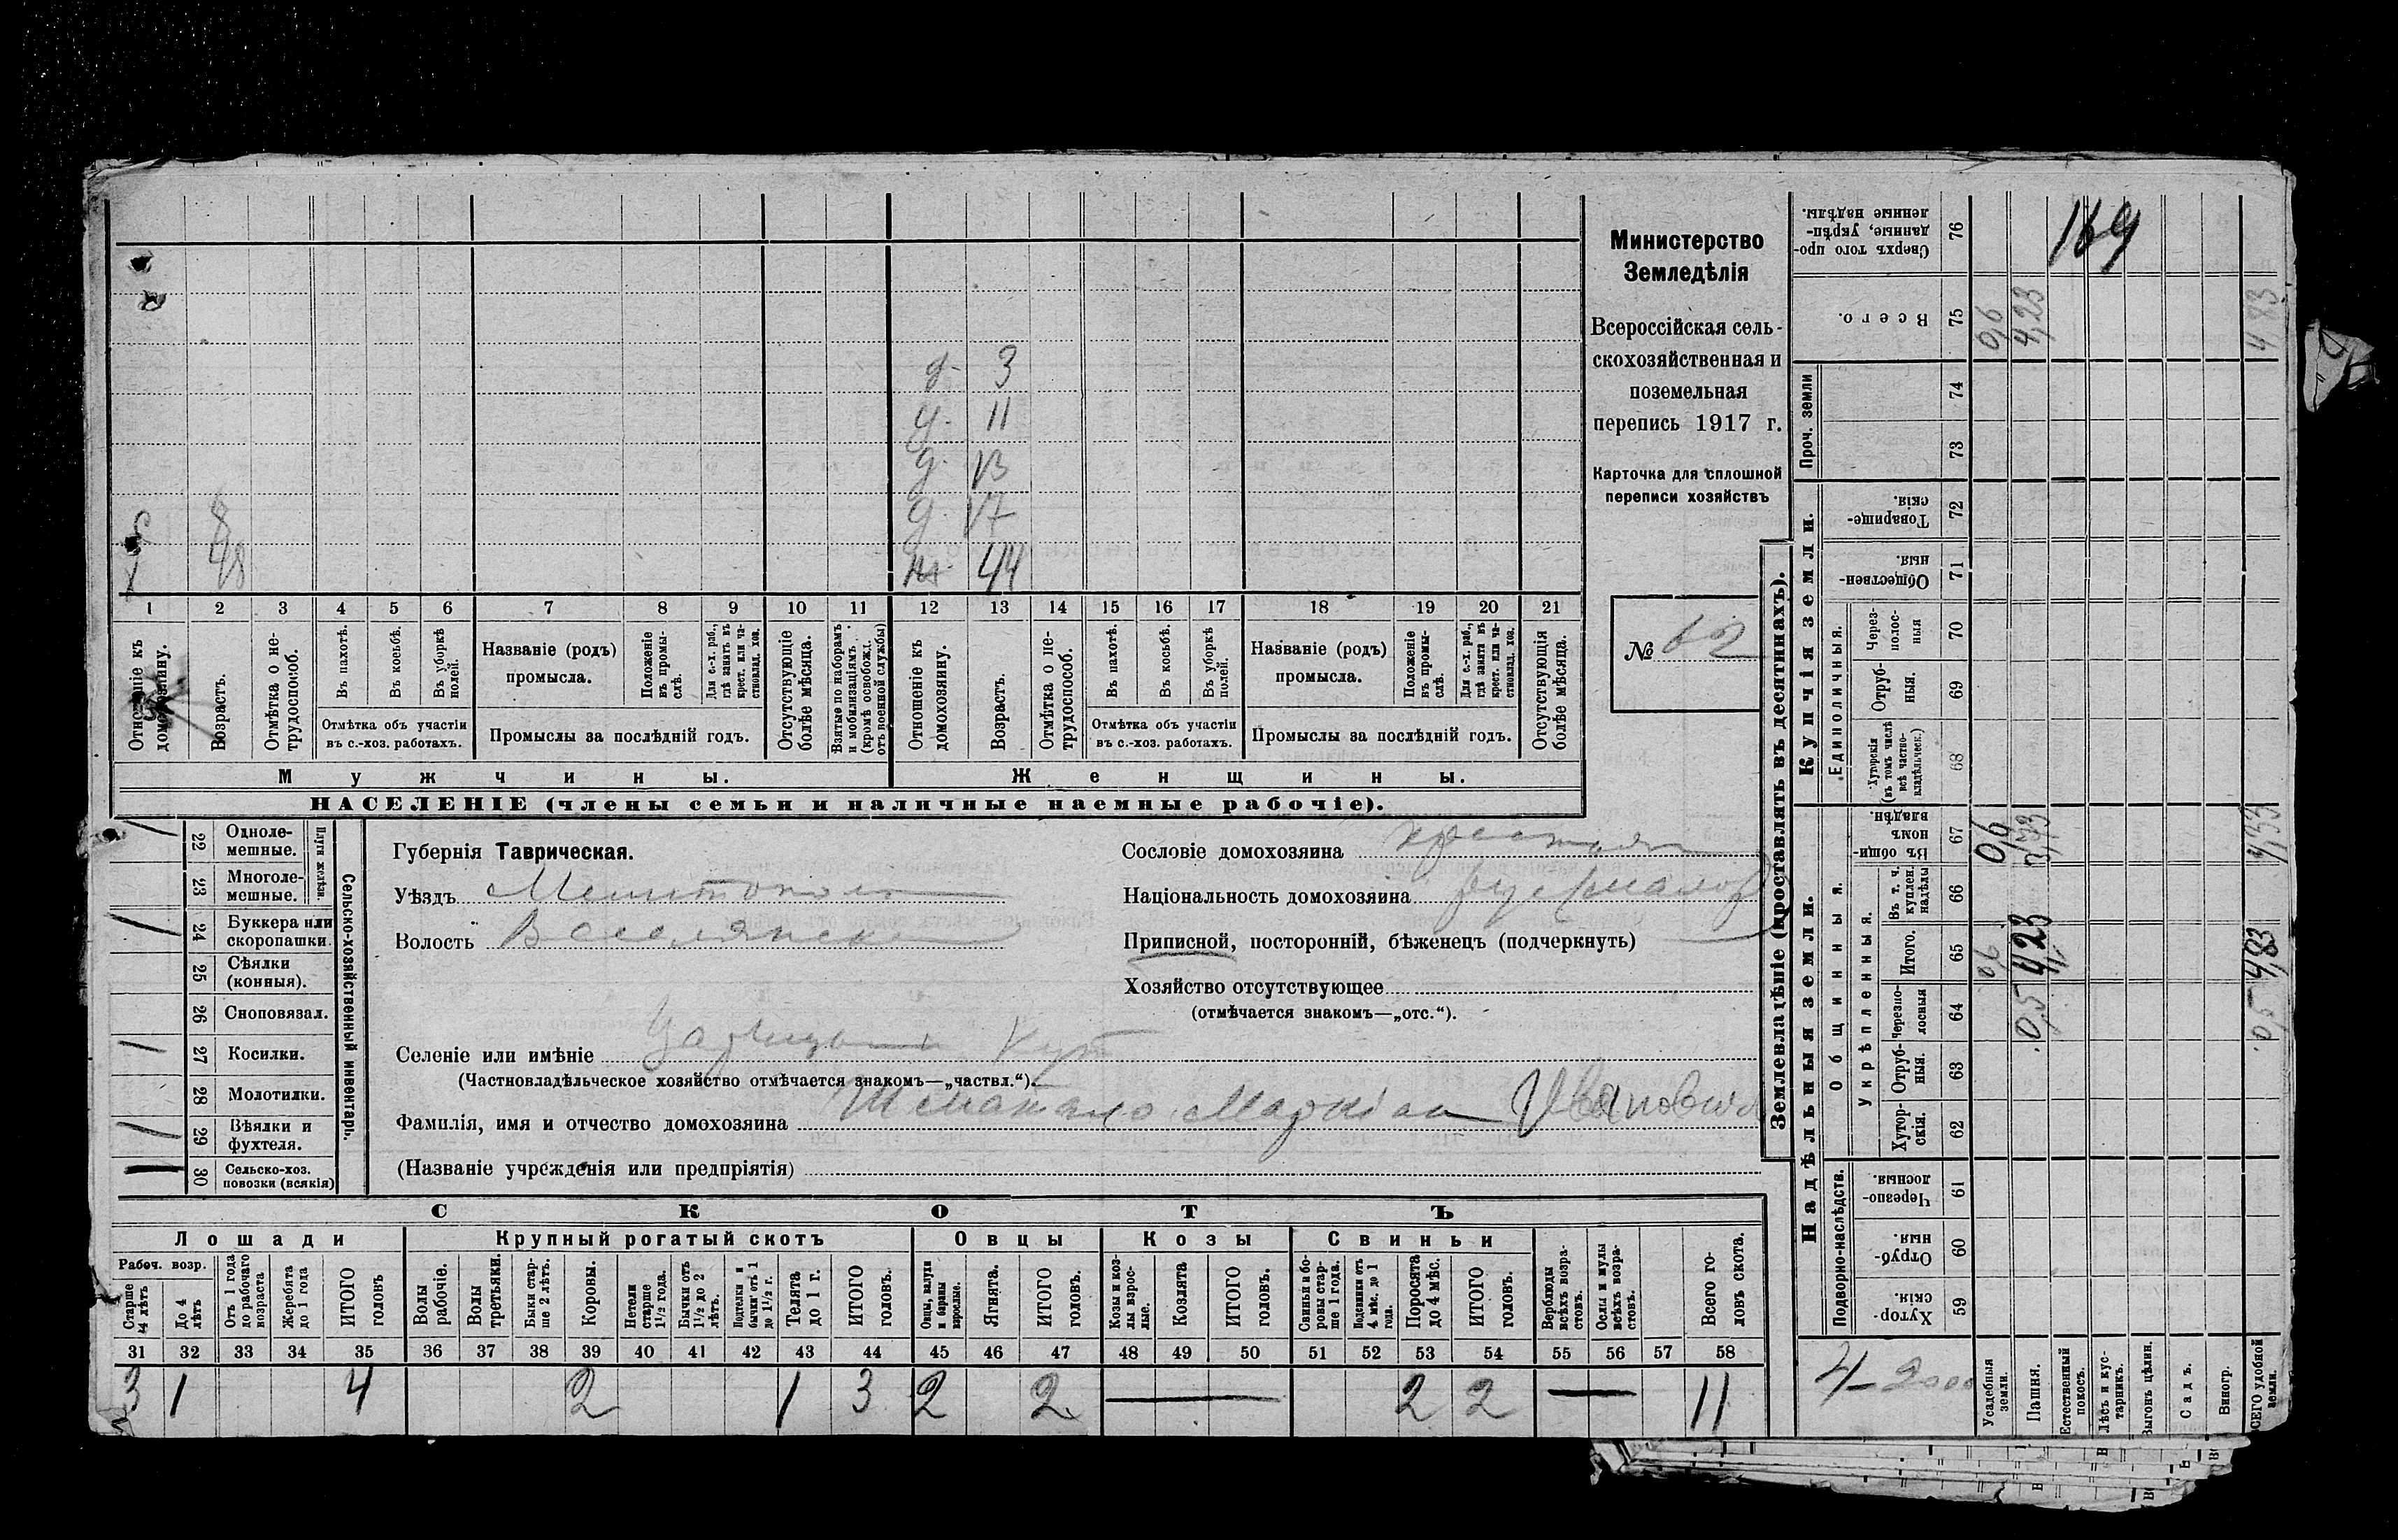 д. 3
д. 11
д. 13
д. 17
ж. 44
с 8
х 48
1 2 3 4 5 6 7 8 9 10 11 12 13 14 15 16 17 18 19 20 21
Отношеніе къ домохозяину.
Возрастъ.
Отмѣтка о не-трудоспособ.
Въ пахотѣ.
Въ косьбѣ.
Въ уборкѣ полей.
Отмѣтка объ участіи
въ с.-хоз. работахъ.
Названіе (родъ)
промысла.
Положеніе въ промы-слѣ.
Для с.-х. раб., гдѣ занятъ въ крест. или ча-стновлад. хоз.
Промыслы за послѣдній годъ.
Отсутствующіе болѣе мѣсяца.
Взятые по наборамъ и мобилизаціямъ (кромѣ освобожд. отъ военной службы)
Отношеніе къ домохозяину.
Возрастъ.
Отмѣтка о не-трудоспособ.
Въ пахотѣ.
Въ косьбѣ.
Въ уборкѣ полей.
Отмѣтка объ участіи
въ с.-хоз. работахъ.
Названіе (родъ)
промысла.
Положеніе въ промы-слѣ.
Для с.-х. раб., гдѣ занята въ крест. или ча-стновлад. хоз.
Промыслы за послѣдній годъ.
Отсутствующія болѣе мѣсяца.
Мужчины.
Женщины.
НАСЕЛЕНІЕ (члены семьи и наличные наемные рабочіе).
Министерство
Земледѣлія
Всероссійская сель-
скохозяйственная и
поземельная
перепись 1917 г.
Карточка для сплошной
переписи хозяйствъ
№ 62
Сельско-хозяйственный инвентарь.
Плуги желѣзн.
22 Одноле-мешные.
23 Многоле-мешные.
24 Буккера или скоропашки.
25 Сѣялки (конныя).
26 Сноповязал.
27 Косилки.
28 Молотилки.
29 Вѣялки и фухтеля.
30 Сельско-хоз. повозки (всякія)
Губернія Таврическая.
Уѣздъ Мелитополь
Волость Веселянская
Селеніе или имѣніе Царицынъ Кут
(Частновладѣльческое хозяйство отмѣчается знакомъ—„частвл.“).
Фамилія, имя и отчество домохозяина Шматало Маркіан Иванович
(Названіе учрежденія или предпріятія)
Сословіе домохозяина крестьян
Національность домохозяина рус/малор
Приписной, посторонній, бѣженецъ (подчеркнуть)
Хозяйство отсутствующее
(отмѣчается знакомъ—„отс.“).
СКОТЪ
Лошади
Крупный рогатый скотъ
Овцы
Козы
Свиньи
Рабоч. возр.
Старше 4 лѣтъ
До 4 лѣтъ
Отъ 1 года до рабочаго возраста
Жеребята до 1 года
ИТОГО головъ
Волы рабочіе.
Волы третьяки.
Быки стар-ше 2 лѣтъ.
Коровы.
Нетели старше 1½ года.
Бычки отъ 1½ до 2 лѣтъ.
Подтелки и бычки отъ 1 до 1½ г.
Телята до 1 г.
ИТОГО головъ.
Овцы, валухи и бараны взрослые.
Ягнята.
ИТОГО головъ.
Козы и коз-лы взрос-лые.
Козлята
ИТОГО головъ.
Свиньи и бо-ровы стар-ше 1 года.
Подсвинки отъ 4 мѣс. до 1 года.
Поросята до 4 мѣс.
ИТОГО головъ.
Верблюды всѣхъ возра-стовъ.
Ослы и мулы всѣхъ возра-стовъ.
Всего го-ловъ скота.
31 32 33 34 35 36 37 38 39 40 41 42 43 44 45 46 47 48 49 50 51 52 53 54 55 56 57 58
3 1 4 2 1 3 2 2 2 2 11
Землевладѣніе (проставлять въ десятинахъ).
Надѣльныя земли.
Купчія земли.
Проч. земли
Подворно-наслѣдств.
Общинныя.
Укрѣпленныя.
Единоличныя.
59 Хутор-скія.
60 Отруб-ныя.
61 Черезпо-лосныя.
62 Хутор-скія.
63 Отруб-ныя.
64 Черезпо-лосныя
65 Итого.
66 Въ т. ч. куплен. надѣлы
67 Въ общи-номъ владѣн.
68 Хуторскія (въ томъ числѣ всѣ частно-владѣльческ.)
69 Отруб-ныя.
70 Через-полос-ныя
71 Обществен-ныя.
72 Товарище-скія.
73
74
75 Всего.
76 Сверхъ того про-данные, укрѣп-ленные надѣлы.
Усадебныя земли.
Пашня.
Естественный покосъ.
Лѣсъ и кус-тарникъ.
Выгонъ цѣлин.
Садъ.
Виногр.
ВСЕГО удобной земли.
169
0,6
4,23
4 83
0,6
3,73
4,33
0,6
4,23
4,83
0,5
0,5
4–2000